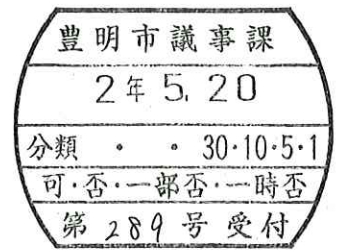 豊明市議事課
2年5.20
分類 ・ ・ 30・10・5・1
可・否・一部否・一時否
第 289 号 受付